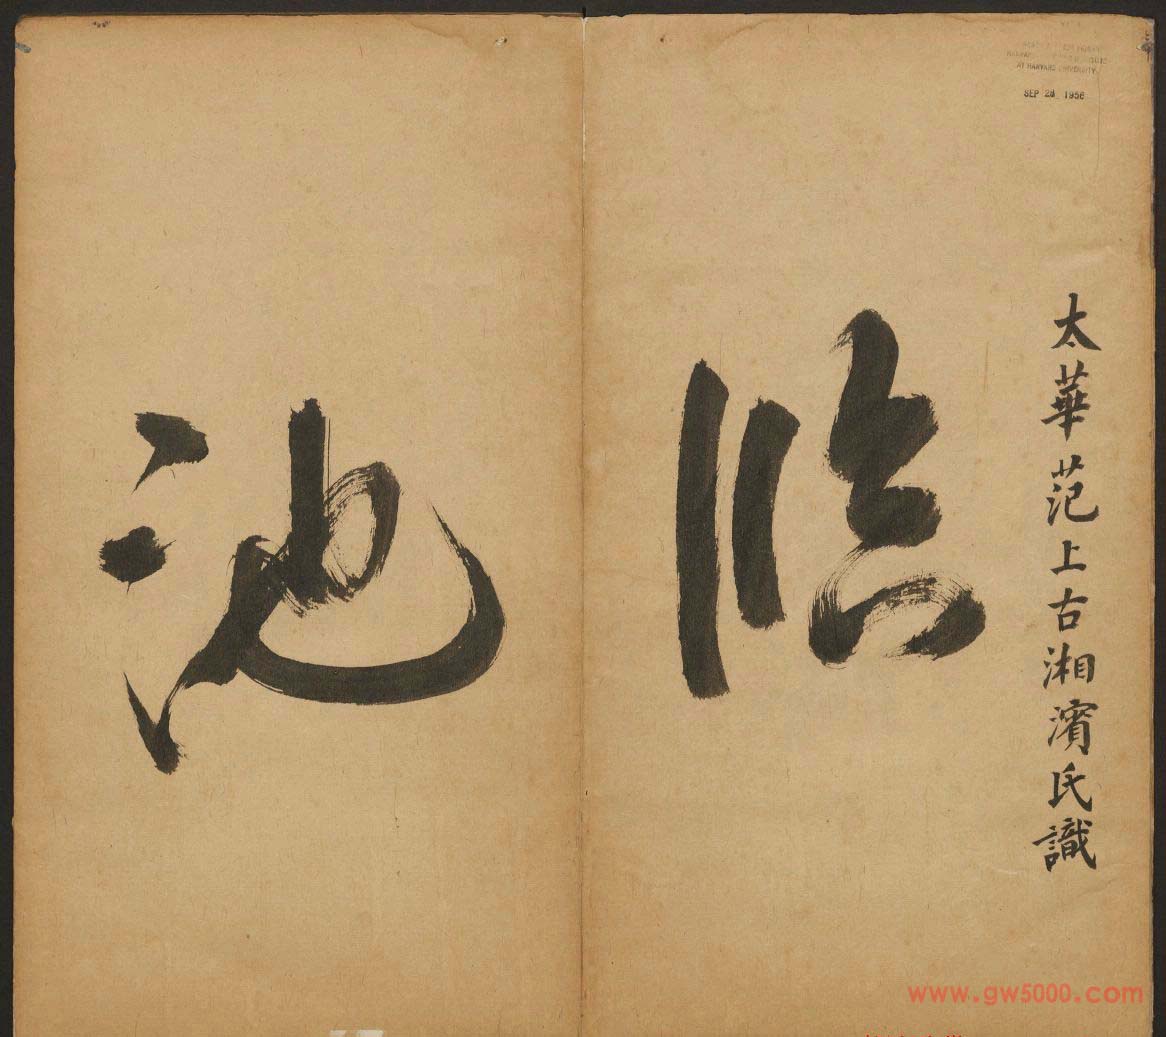 太華范上古湘濱氏識
臨
池
AT HARVARD UNIVERSITY
SEP 28 1956
www.gw5000.com